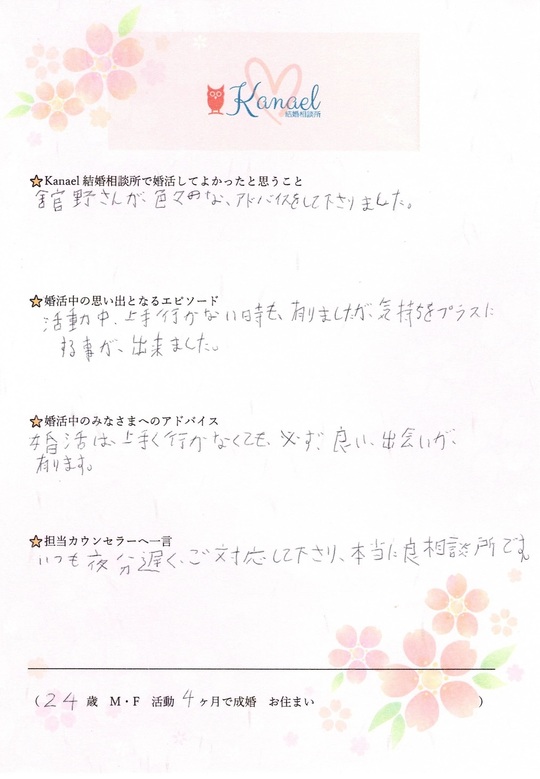 Kanael
結婚相談所
★Kanael 結婚相談所で婚活してよかったと思うこと
舘野さんが、色々のな、アドバイスをして下さりました。
★婚活中の思い出となるエピソード
活動中、上手行かない日時も、有りましたが、気持ちをプラスに
する事が、出来ました。
★婚活中のみなさまへのアドバイス
婚活は、上手く行かなくても、必ず、良い、出会いが、
有ります。
★担当カウンセラーへ一言
いつも夜分遅く、ご対応して下さり、本当に良相談所です。
（24歳 M・F 活動 4ヶ月で成婚 お住まい ）